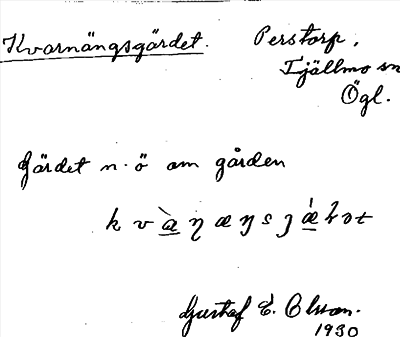 Kvarnängsgärdet. Perstorp,
Tjällmo sn
Ögl.
Gärdet n. ö om gården
Gustaf E. Olsson.
1930